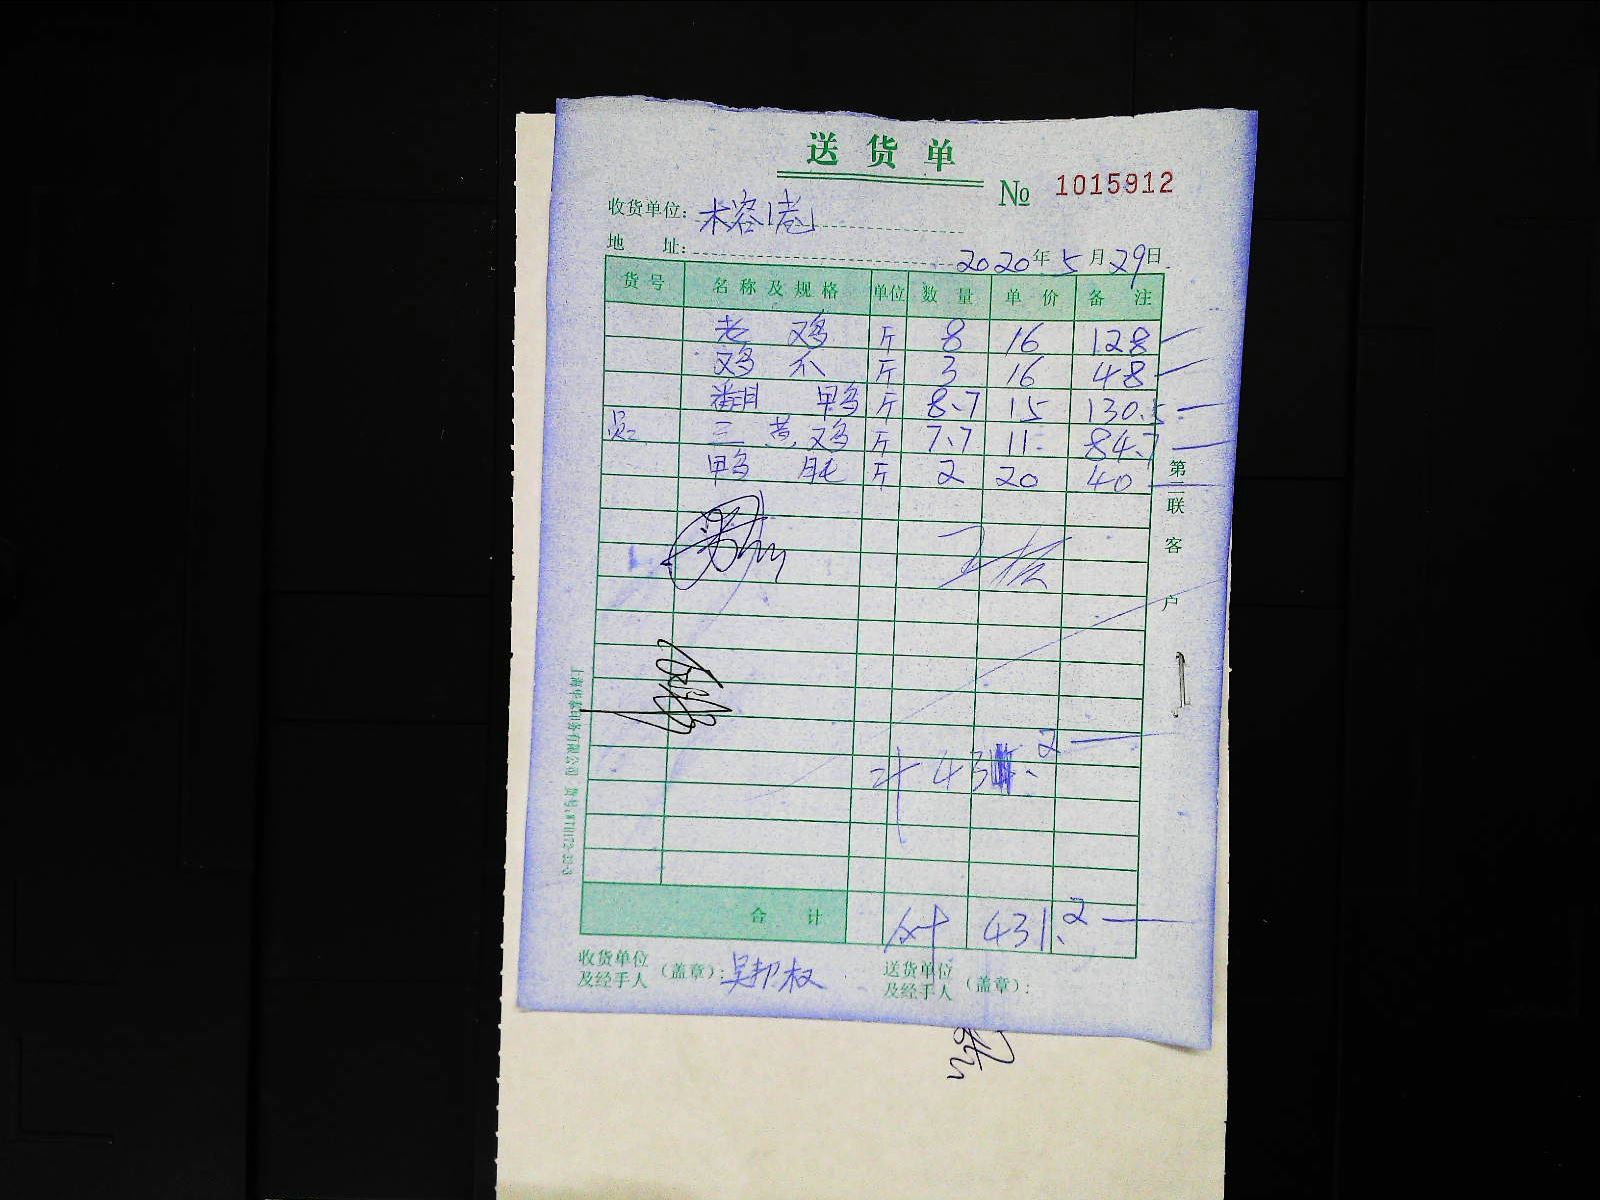 送货单
№ 1015912
收货单位: 木容1巷
地 址:
2020年5月29日
货号 名称及规格 单位 数量 单价 备注
老鸡 斤 8 16 128
鸡爪 斤 3 16 48
翻鸭 斤 8.7 15 130.5
员: 三黄鸡 斤 7.7 11 84.7
鸭肫 斤 2 20 40
计 431.2
合计 计 431.2
收货单位及经手人(盖章): 吴邦权
送货单位及经手人(盖章):
第二联 客户